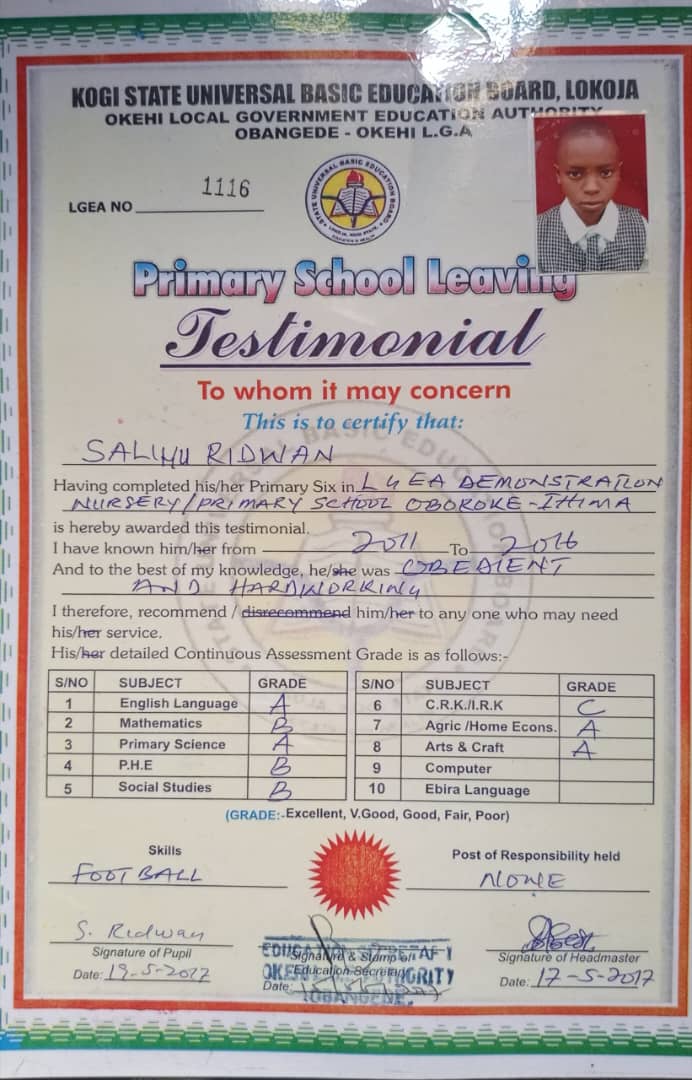 KOGI STATE UNIVERSAL BASIC EDUCATION BOARD, LOKOJA
OKEHI LOCAL GOVERNMENT EDUCATION AUTHORITY
OBANGEDE - OKEHI L.G.A
LGEA NO 1116
STATE UNIVERSAL BASIC EDUCATION BOARD
Primary School Leaving
Testimonial
To whom it may concern
This is to certify that:
SALIHU RIDWAN
Having completed his/her Primary Six in LGEA DEMONSTRATION
NURSERY/PRIMARY SCHOOL OBOROKE-IHIMA
is hereby awarded this testimonial.
I have known him/her from 2011 To 2016
And to the best of my knowledge, he/she was OBEDIENT
AND HARDWORKING
I therefore, recommend / disrecommend him/her to any one who may need
his/her service.
His/her detailed Continuous Assessment Grade is as follows:-
S/NO SUBJECT GRADE S/NO SUBJECT GRADE
1 English Language A 6 C.R.K./I.R.K C
2 Mathematics B 7 Agric /Home Econs. A
3 Primary Science A 8 Arts & Craft A
4 P.H.E B 9 Computer
5 Social Studies B 10 Ebira Language
(GRADE:-Excellent, V.Good, Good, Fair, Poor)
Skills Post of Responsibility held
FOOTBALL NONE
S. Ridwan
Signature of Pupil Signature & Stamp of Signature of Headmaster
Education Secretary
Date: 19-5-2017 Date: Date: 17-5-2017
OBANGEDE.